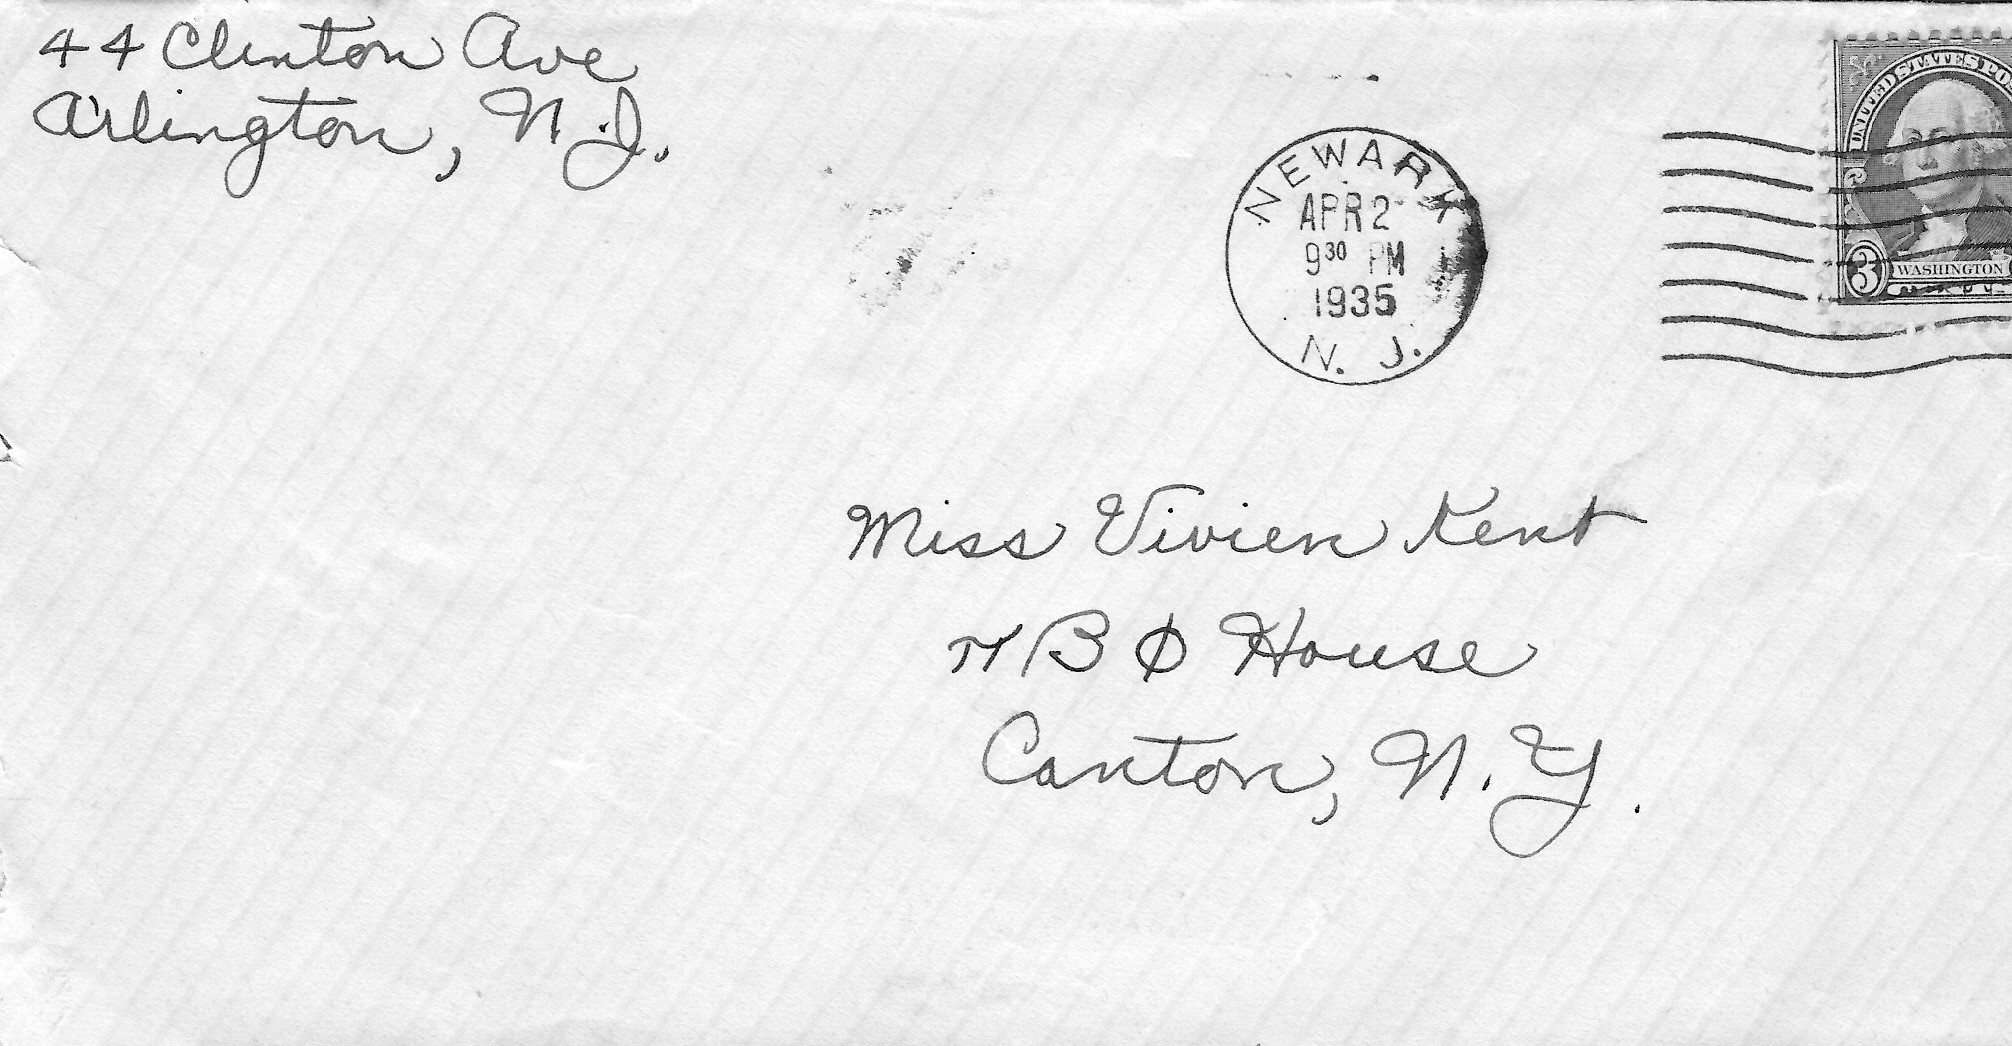 44 Clinton Ave
Arlington, N.J.
NEWARK
APR 2
9 30 PM
1935
N. J.
UNITED STATES PO
3
WASHINGTON
Miss Vivien Kent
π B Φ House
Canton, N.Y.